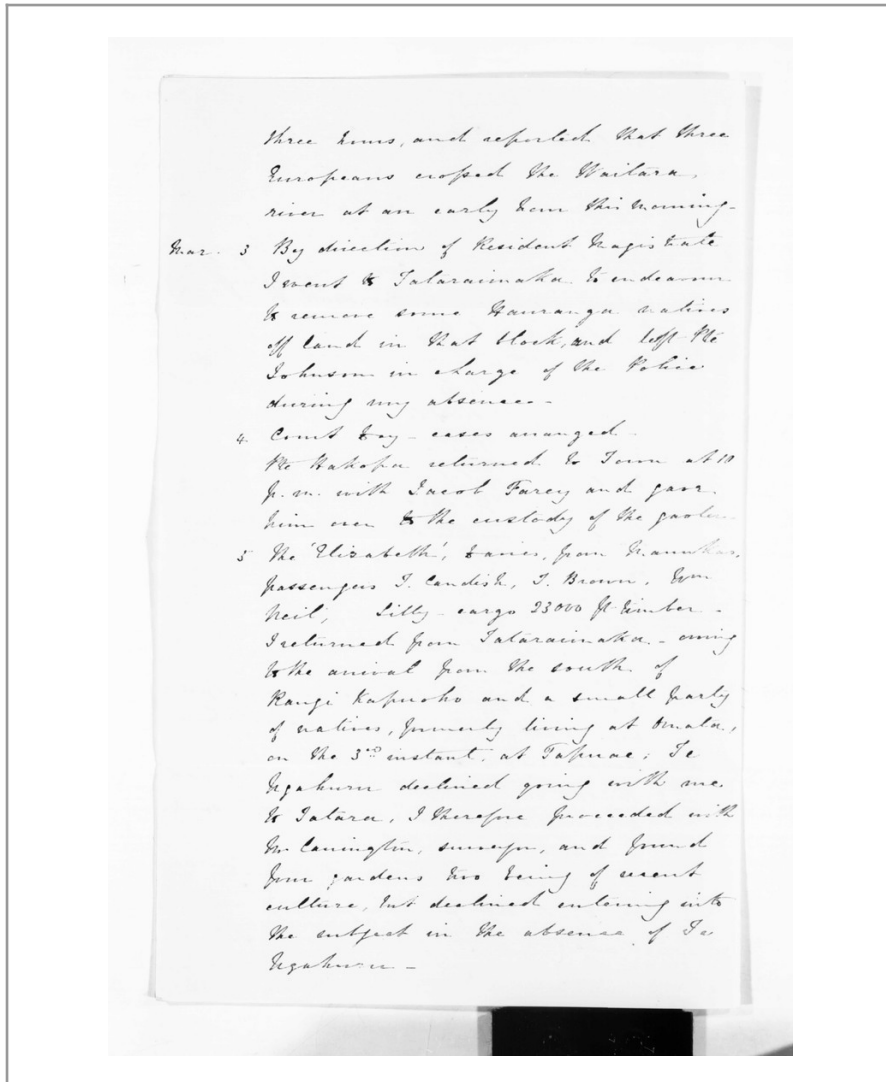 three hours, and reported that three
Europeans crossed the Waitara
river at an early hour this morning -
Mar. 3 By direction of Resident Magistrate
I went to Tataraimaka to endeavour
to remove some Tauranga natives
off land in that block, and left Pte
Johnson in charge of the Police
during my absence -
4. Court day - cases arranged -
Pte Hakopa returned to Town at 10
p.m. with Jacob Farey and gave
him over to the custody of the gaoler
5 The 'Elizabeth', from Manukau,
passengers T. Candish, T. Brown, Wm
Neil, Lilly - cargo 23000 ft timber -
I returned from Tataraimaka - owing
to the arrival from the south of
Rangi Kapuoho and a small party
of natives, formerly living at Omata,
on the 3rd instant, at Tapuae; Te
Ngahuru declined going with me
to Tatara, I therefore proceeded with
Mr Carrington, surveyor, and found
four gardens two being of recent
culture, but declined entering into
the subject in the absence of Te
Ngahuru -